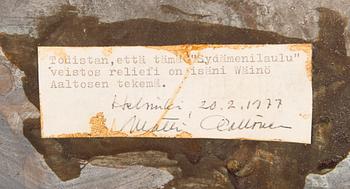 Todistan,että tämä "Sydämenilaulu"
veistos reliefi on isäni Wäinö
Aaltosen tekemä.
Helsinki 20.2.1977
Matti Aaltonen